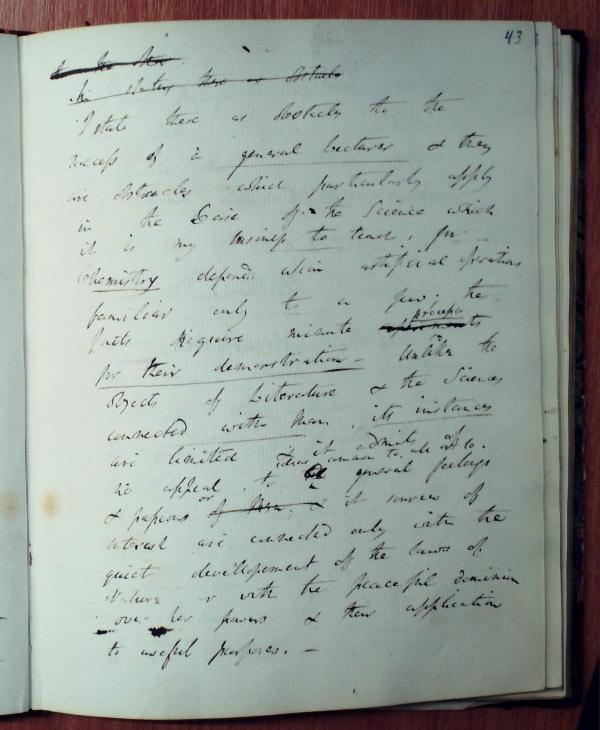 43
In stating these as obstacles
I state these as obstacles to the
success of a general lecturer & they
are obstacles which particularly apply
in the Case of the Science which
it is my business to teach, for
Chemistry depends upon artificial operations
familiar only to a few; the
facts require minute processes
for their demonstration – Unlike the
objects of Literature & the Sciences
connected with Man, its instances
are limited & it admits of
no appeal to ideas common to all or to general feelings
& passions of Man; & it sources of
interest are connected only with the
quiet developement of the laws of
Nature or with the peaceful dominion
over her powers & their application
to useful purposes. –